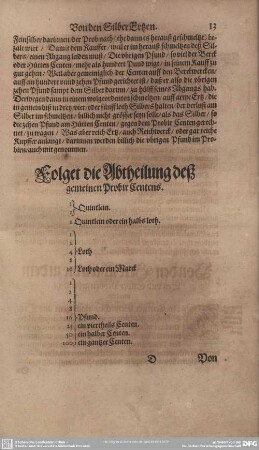 Von den Silber Ertzen. 13
Fein silber darinnen der Prob nach / ehe dann es herauß geschmeltzt / be-
zalt wirt / Damit dem Kauffer / weil er im herauß schmeltzen deß Sil-
bers / einen Abgang leiden muß / Die vbrigen Pfund / so viel der Berck
oder Hütten Centen / mehr als hundert Pfund wigt / in seinem Kauff zu
gut gehen / Weil aber gemeiniglich der Centen auff den Berckwercken /
auff an hundert vnnd zehen Pfund gerichtet ist / daß er also die vbrigen
zehen Pfund sampt dem Silber darinn / zu hülff seines Abgangs hab.
vnd in einem
Silber im schmeltzen / billich nicht größer sein solle / als das Silber / so
die zehen Pfund am Hütten Centen / gegen dem Probir Centen gerech-
net / zutragen / Was aber reich Ertz / auch Reichwerck / oder gar reiche
Kupffer anlangt / darinnen werden billich die vbrigen Pfund im Pro-
biern auch mit genommen.
Folget die Abtheilung deß
gemeinen Probir Centens.
Quintlein.
2 Quintlein oder ein halbs loth.
1
2
4 Loth
8
16 Loth oder ein Marck
1
2
4
8
16 Pfund.
25 ein viertheils Centen.
50 ein halber Centen.
100 ein gantzer Centen.
D Von